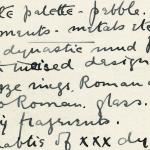 palette. pebble.
metals
dynastic mud
incised design
rings. Roman
Roman. glass.
fragments.
of XXX dy